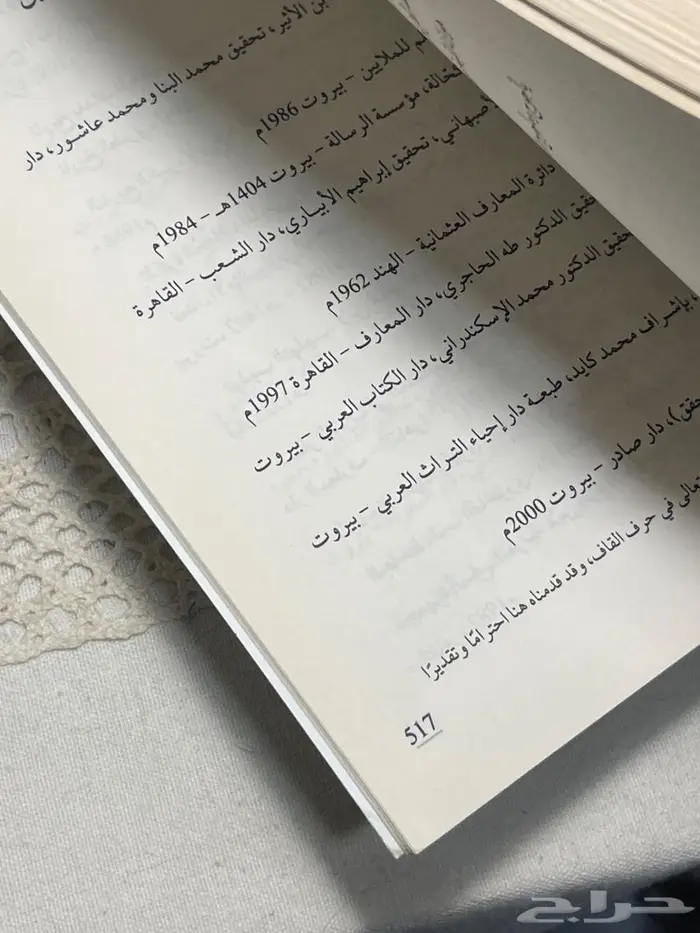 ابن الأثير، تحقيق محمد البنا ومحمد عاشور، دار
للملايين - بيروت 1986م
كحالة، مؤسسة الرسالة - بيروت 1404هـ - 1984م
تحقيق إبراهيم الأبياري، دار الشعب - القاهرة
دائرة المعارف العثمانية - الهند 1962م
تحقيق الدكتور طه الحاجري، دار المعارف - القاهرة 1997م
تحقيق الدكتور محمد الإسكندراني، دار الكتاب العربي - بيروت
بإشراف محمد كايد، طبعة دار إحياء التراث العربي - بيروت
دار صادر - بيروت 2000م
تعالى في حرف القاف، وقد قدمناه هنا احترامًا وتقديرًا
517
حراج